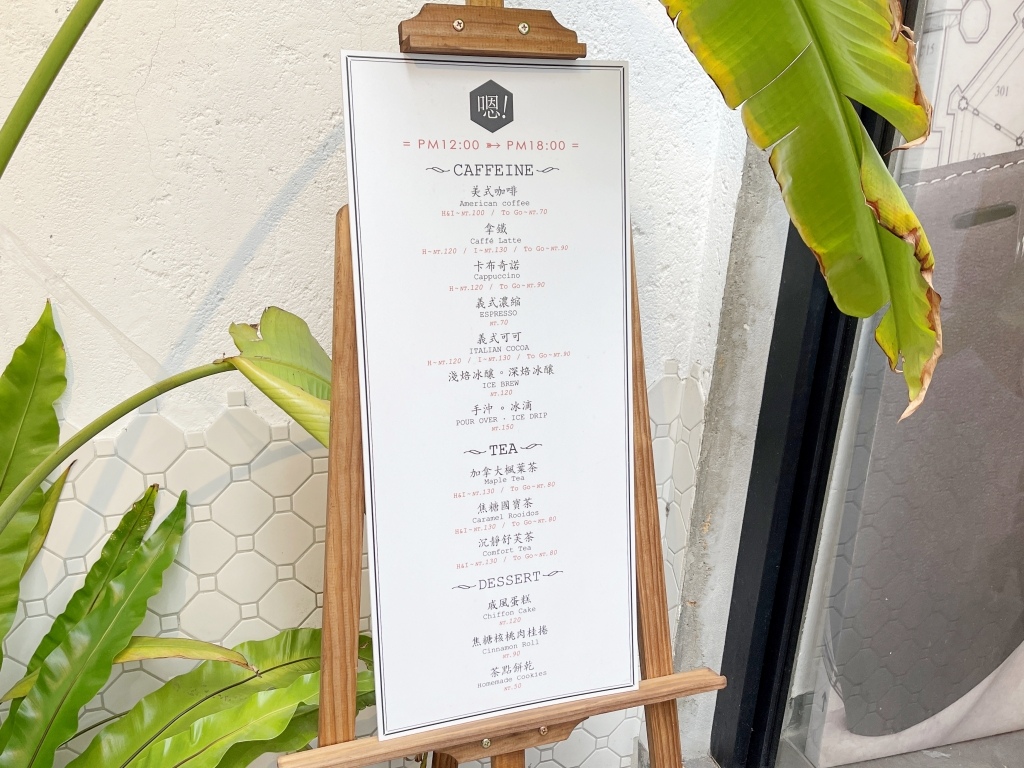 嗯!
= PM12:00 ➳ PM18:00 =
CAFFEINE
美式咖啡
American coffee
H&I~NT.100 / To Go~NT.70
拿鐵
Caffé Latte
H~NT.120 / I~NT.130 / To Go~NT.90
卡布奇諾
Cappuccino
H~NT.120 / To Go~NT.90
義式濃縮
ESPRESSO
NT.70
義式可可
ITALIAN COCOA
H~NT.120 / I~NT.130 / To Go~NT.90
淺焙冰釀。深焙冰釀
ICE BREW
NT.120
手沖。冰滴
POUR OVER · ICE DRIP
NT.150
TEA
加拿大楓葉茶
Maple Tea
H&I~NT.130 / To Go~NT.80
焦糖國寶茶
Caramel Rooidos
H&I~NT.130 / To Go~NT.80
沉靜舒芙茶
Comfort Tea
H&I~NT.130 / To Go~NT.80
DESSERT
戚風蛋糕
Chiffon Cake
NT.120
焦糖核桃肉桂捲
Cinnamon Roll
NT.90
茶點餅乾
Homemade Cookies
NT.30
301